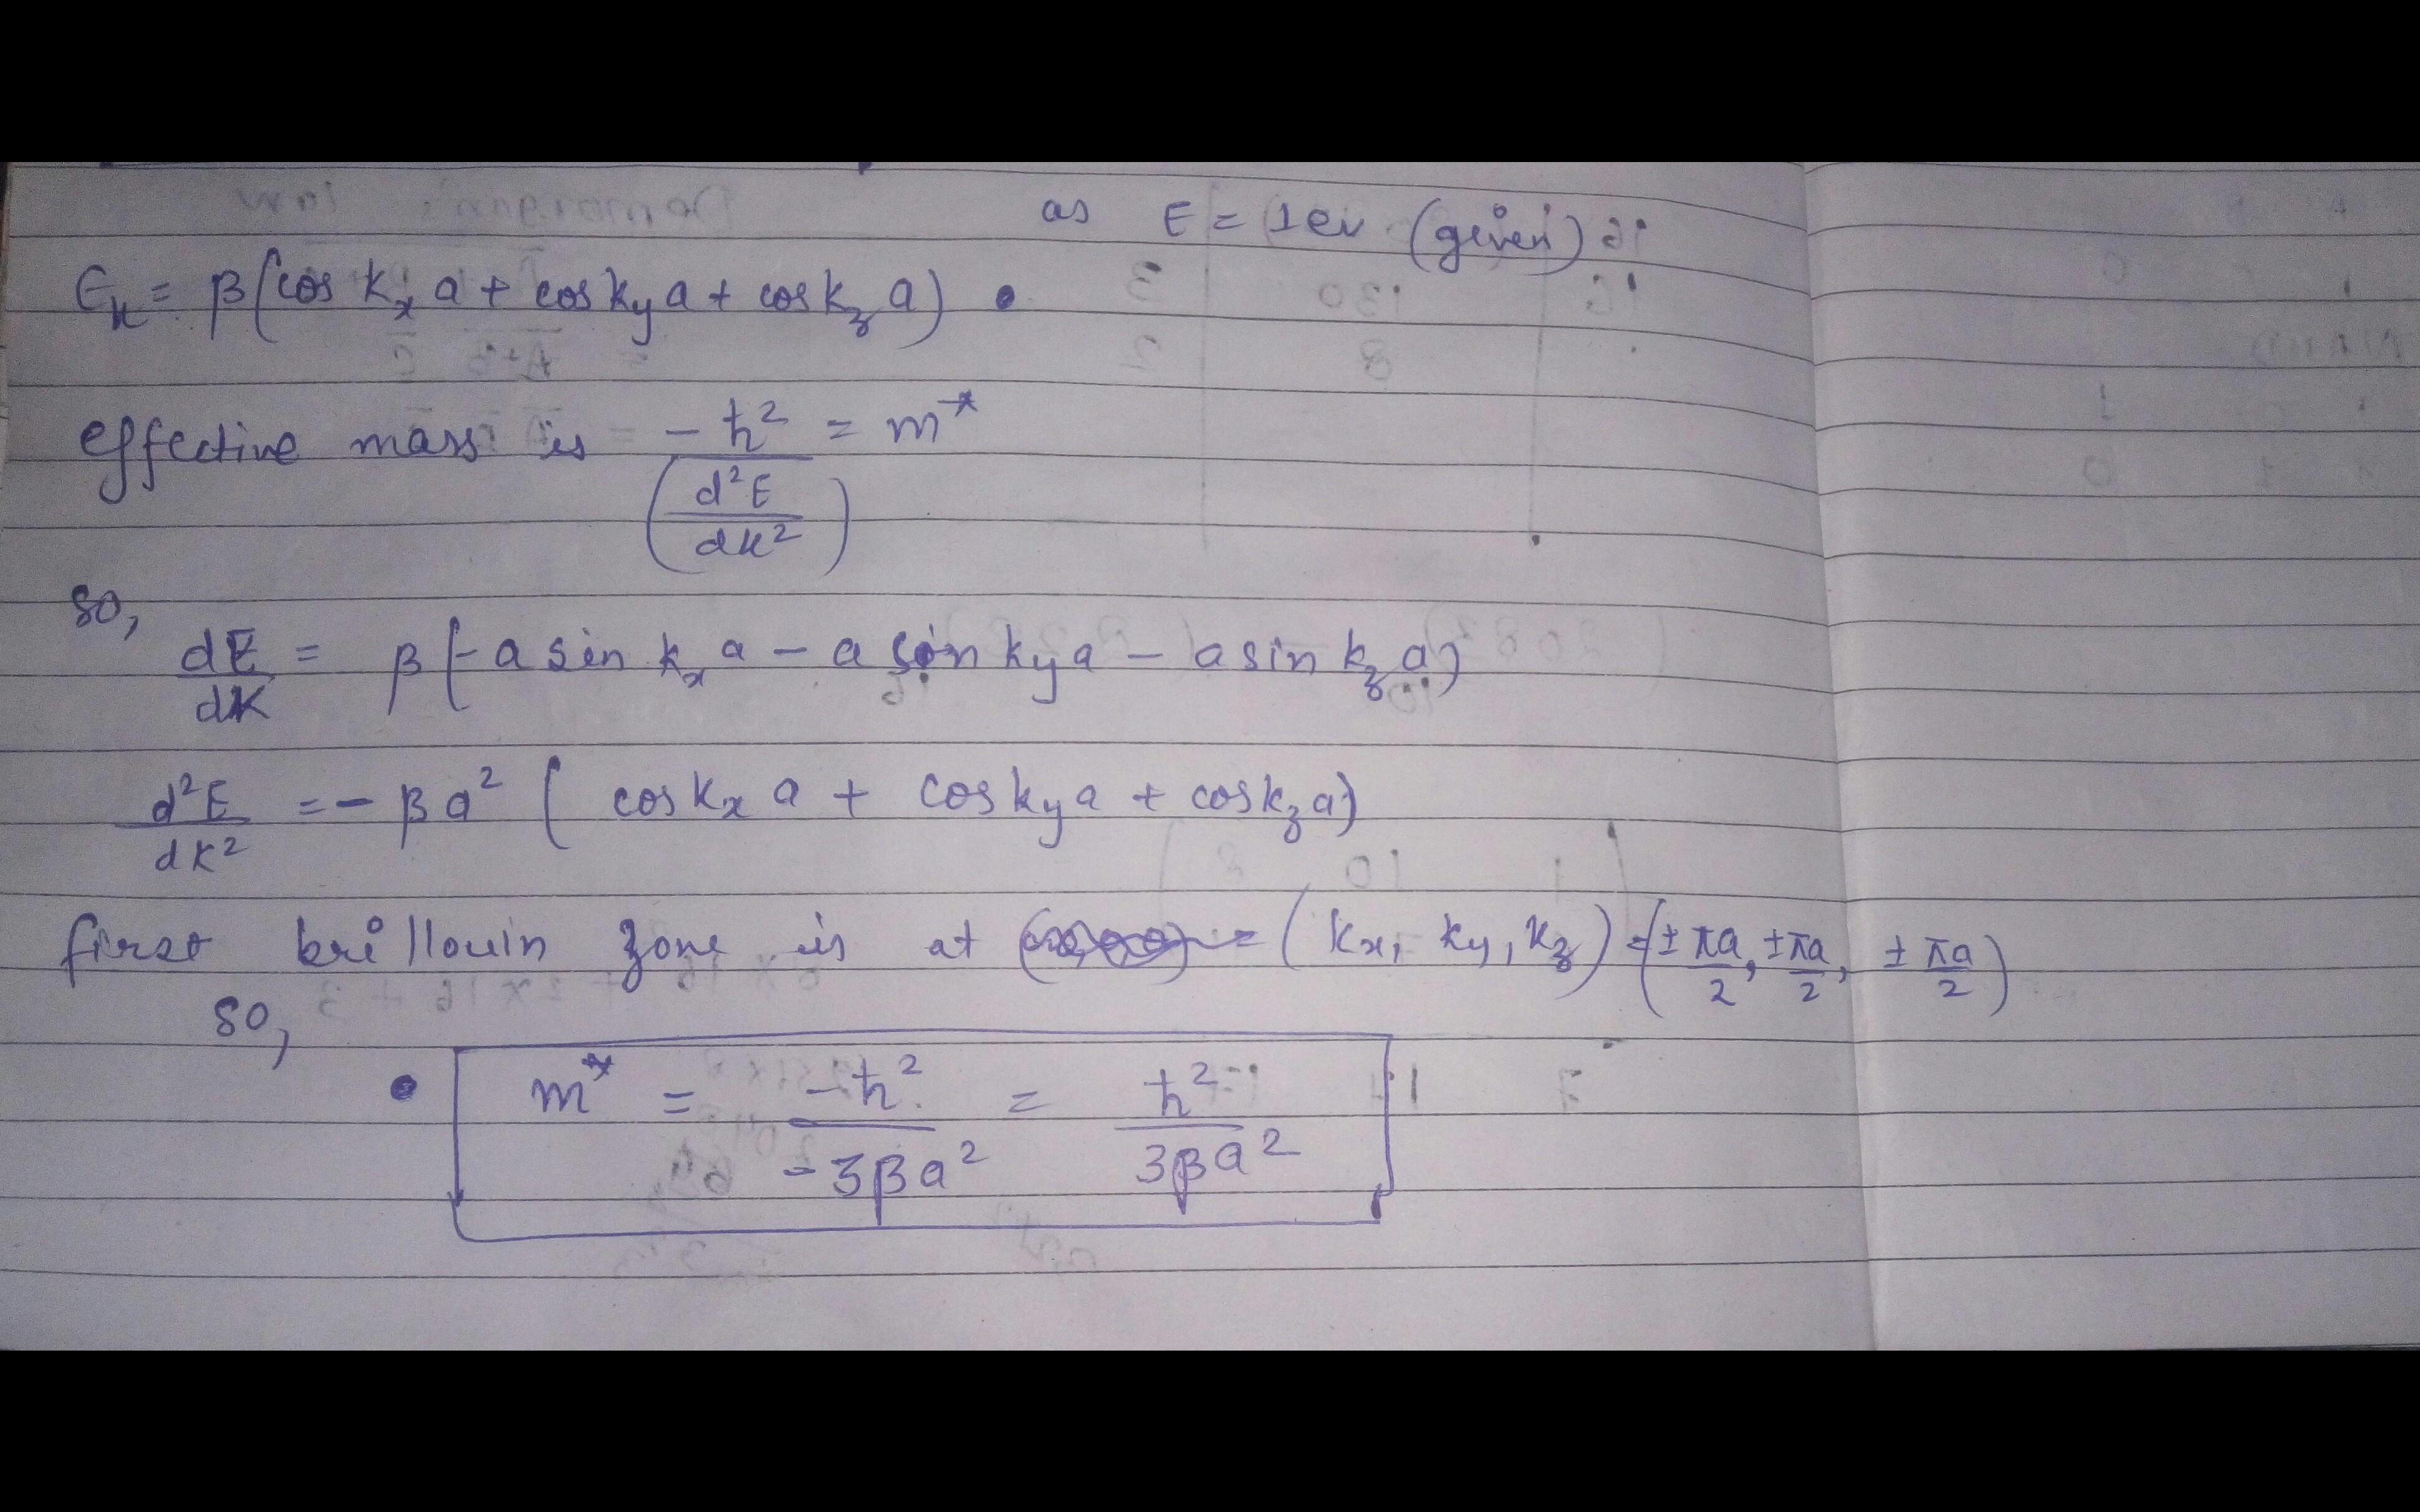 as E = 1ev (given)
Ek = β(cos kx a + cos ky a + cos kz a)
effective mass is -ħ² / (d²E/dk²) = m*
so,
dE/dK = β(-a sin kx a - a sin ky a - a sin kz a)
d²E/dK² = - β a² ( cos kx a + cos ky a + cos kz a)
first brillouin zone is at (kx, ky, kz) = (± πa/2, ± πa/2, ± πa/2)
so,
m* = -ħ² / -3βa² = ħ² / 3βa²